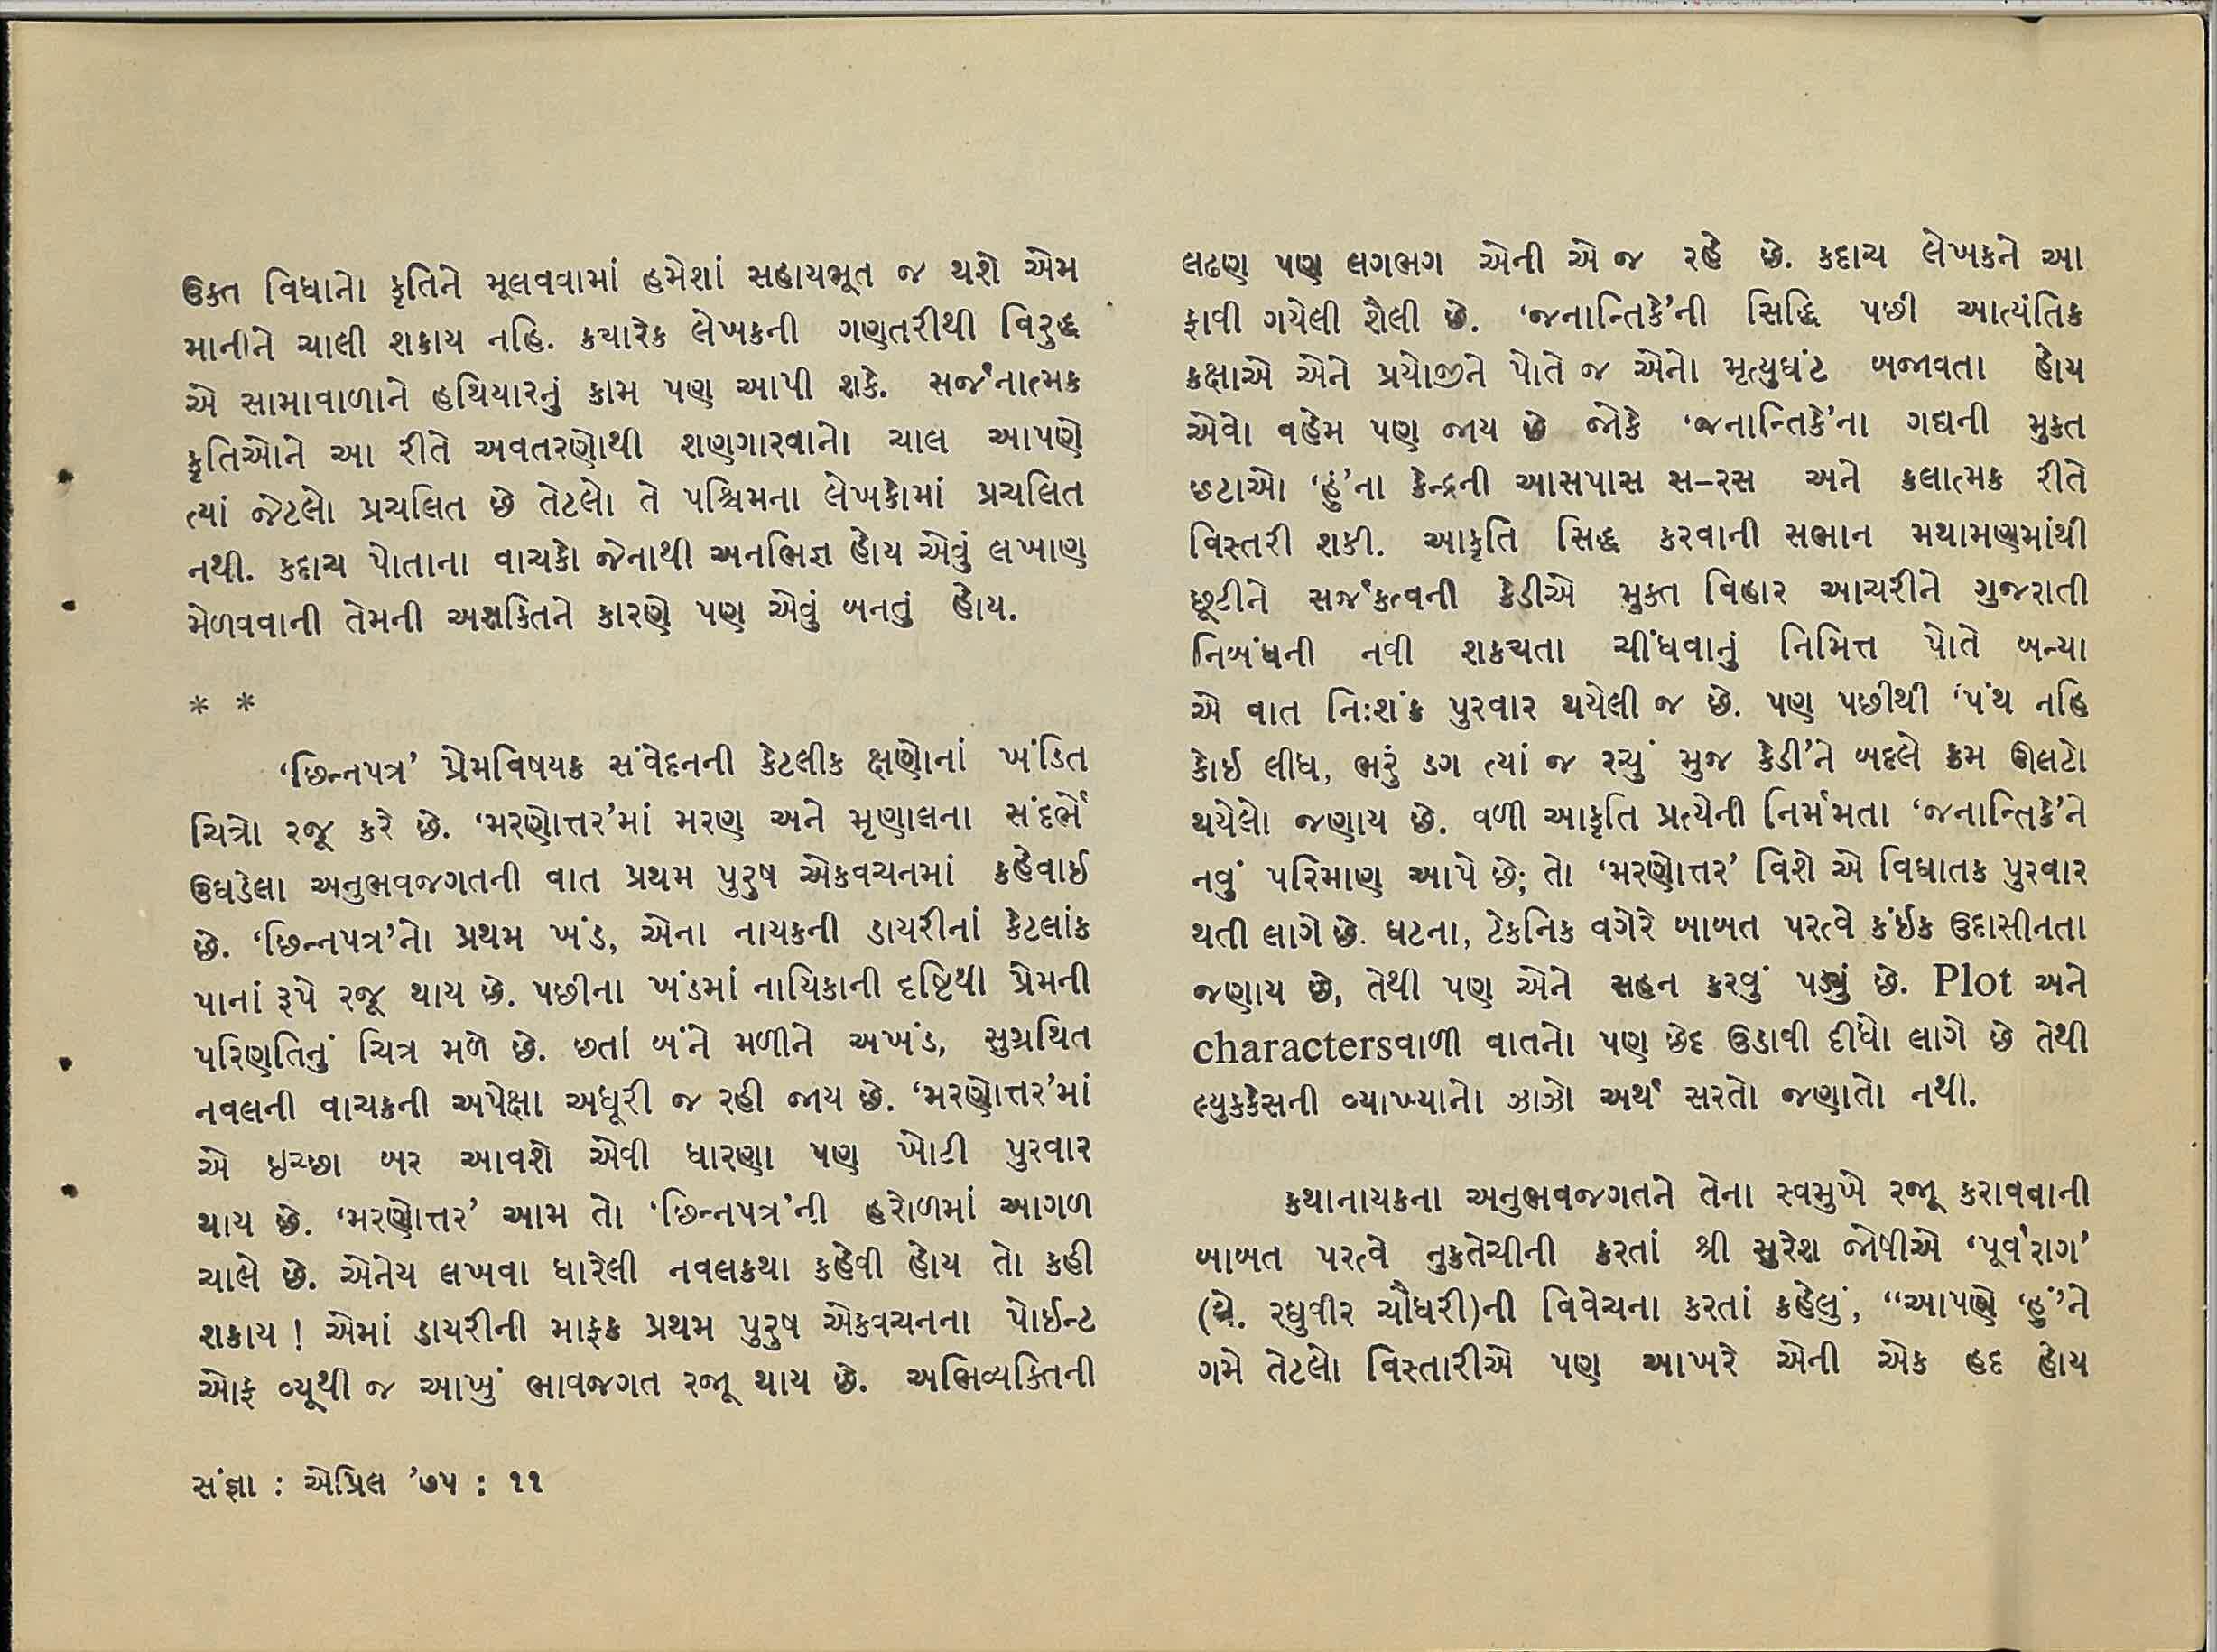 ઉક્ત વિધાનો કૃતિને મૂલવવામાં હમેશાં સહાયભૂત જ થશે એમ
માનીને ચાલી શકાય નહિ. ક્યારેક લેખકની ગણતરીથી વિરુદ્ધ
એ સામાવાળાને હથિયારનું કામ પણ આપી શકે. સર્જનાત્મક
કૃતિઓને આ રીતે અવતરણોથી શણગારવાનો ચાલ આપણે
ત્યાં જેટલો પ્રચલિત છે તેટલો તે પશ્ચિમના લેખકોમાં પ્રચલિત
નથી. કદાચ પોતાના વાચકો જેનાથી અનભિજ્ઞ હોય એવું લખાણ
મેળવવાની તેમની અશક્તિને કારણે પણ એવું બનતું હોય.
* *
‘છિન્નપત્ર’ પ્રેમવિષયક સંવેદનની કેટલીક ક્ષણોનાં ખંડિત
ચિત્રો રજૂ કરે છે. ‘મરણોત્તર’માં મરણ અને મૃણાલના સંદર્ભે
ઉઘડેલા અનુભવજગતની વાત પ્રથમ પુરુષ એકવચનમાં કહેવાઈ
છે. ‘છિન્નપત્ર’નો પ્રથમ ખંડ, એના નાયકની ડાયરીનાં કેટલાંક
પાનાં રૂપે રજૂ થાય છે. પછીના ખંડમાં નાયિકાની દૃષ્ટિથી પ્રેમની
પરિણતિનું ચિત્ર મળે છે. છતાં બંને મળીને અખંડ, સુગ્રથિત
નવલની વાચકની અપેક્ષા અધૂરી જ રહી જાય છે. ‘મરણોત્તર’માં
એ ઇચ્છા બર આવશે એવી ધારણા પણ ખોટી પુરવાર
થાય છે. ‘મરણોત્તર’ આમ તો ‘છિન્નપત્ર’ની હરોળમાં આગળ
ચાલે છે. એનેય લખવા ધારેલી નવલકથા કહેવી હોય તો કહી
શકાય ! એમાં ડાયરીની માફક પ્રથમ પુરુષ એકવચનના પોઈન્ટ
ઓફ વ્યૂથી જ આખું ભાવજગત રજૂ થાય છે. અભિવ્યક્તિની
સંજ્ઞા : એપ્રિલ ’૭૫ : ૧૧
લઢણ પણ લગભગ એની એ જ રહે છે. કદાચ લેખકને આ
ફાવી ગયેલી શૈલી છે. ‘જનાન્તિકે’ની સિદ્ધિ પછી આત્યંતિક
કક્ષાએ એને પ્રયોજીને પોતે જ એનો મૃત્યુઘંટ બજાવતા હોય
એવો વહેમ પણ જાય છે જોકે ‘જનાન્તિકે’ના ગદ્યની મુક્ત
છટાઓ ‘હું’ના કેન્દ્રની આસપાસ સ-રસ અને કલાત્મક રીતે
વિસ્તરી શકી. આકૃતિ સિદ્ધ કરવાની સભાન મથામણમાંથી
છૂટીને સર્જકત્વની કેડીએ મુક્ત વિહાર આચરીને ગુજરાતી
નિબંધની નવી શક્યતા ચીંધવાનું નિમિત્ત પોતે બન્યા
એ વાત નિઃશંક પુરવાર થયેલી જ છે. પણ પછીથી ‘પંથ નહિ
કોઇ લીધ, ભરું ડગ ત્યાં જ રચું મુજ કેડી’ને બદલે ક્રમ ઊલટો
થયેલો જણાય છે. વળી આકૃતિ પ્રત્યેની નિર્મમતા ‘જનાન્તિકે’ને
નવું પરિમાણ આપે છે; તો ‘મરણોત્તર’ વિશે એ વિઘાતક પુરવાર
થતી લાગે છે. ઘટના, ટેકનિક વગેરે બાબત પરત્વે કંઈક ઉદાસીનતા
જણાય છે, તેથી પણ એને સહન કરવું પડ્યું છે. Plot અને
charactersવાળી વાતનો પણ છેદ ઉડાવી દીધો લાગે છે તેથી
લ્યુકકેસની વ્યાખ્યાનો ઝાઝો અર્થ સરતો જણાતો નથી.
કથાનાયકના અનુભવજગતને તેના સ્વમુખે રજૂ કરાવવાની
બાબત પરત્વે નુક્તેચીની કરતાં શ્રી સુરેશ જોષીએ ‘પૂર્વરાગ’
(લે. રઘુવીર ચૌધરી)ની વિવેચના કરતાં કહેલું, “આપણે ‘હું’ને
ગમે તેટલો વિસ્તારીએ પણ આખરે એની એક હદ હોય